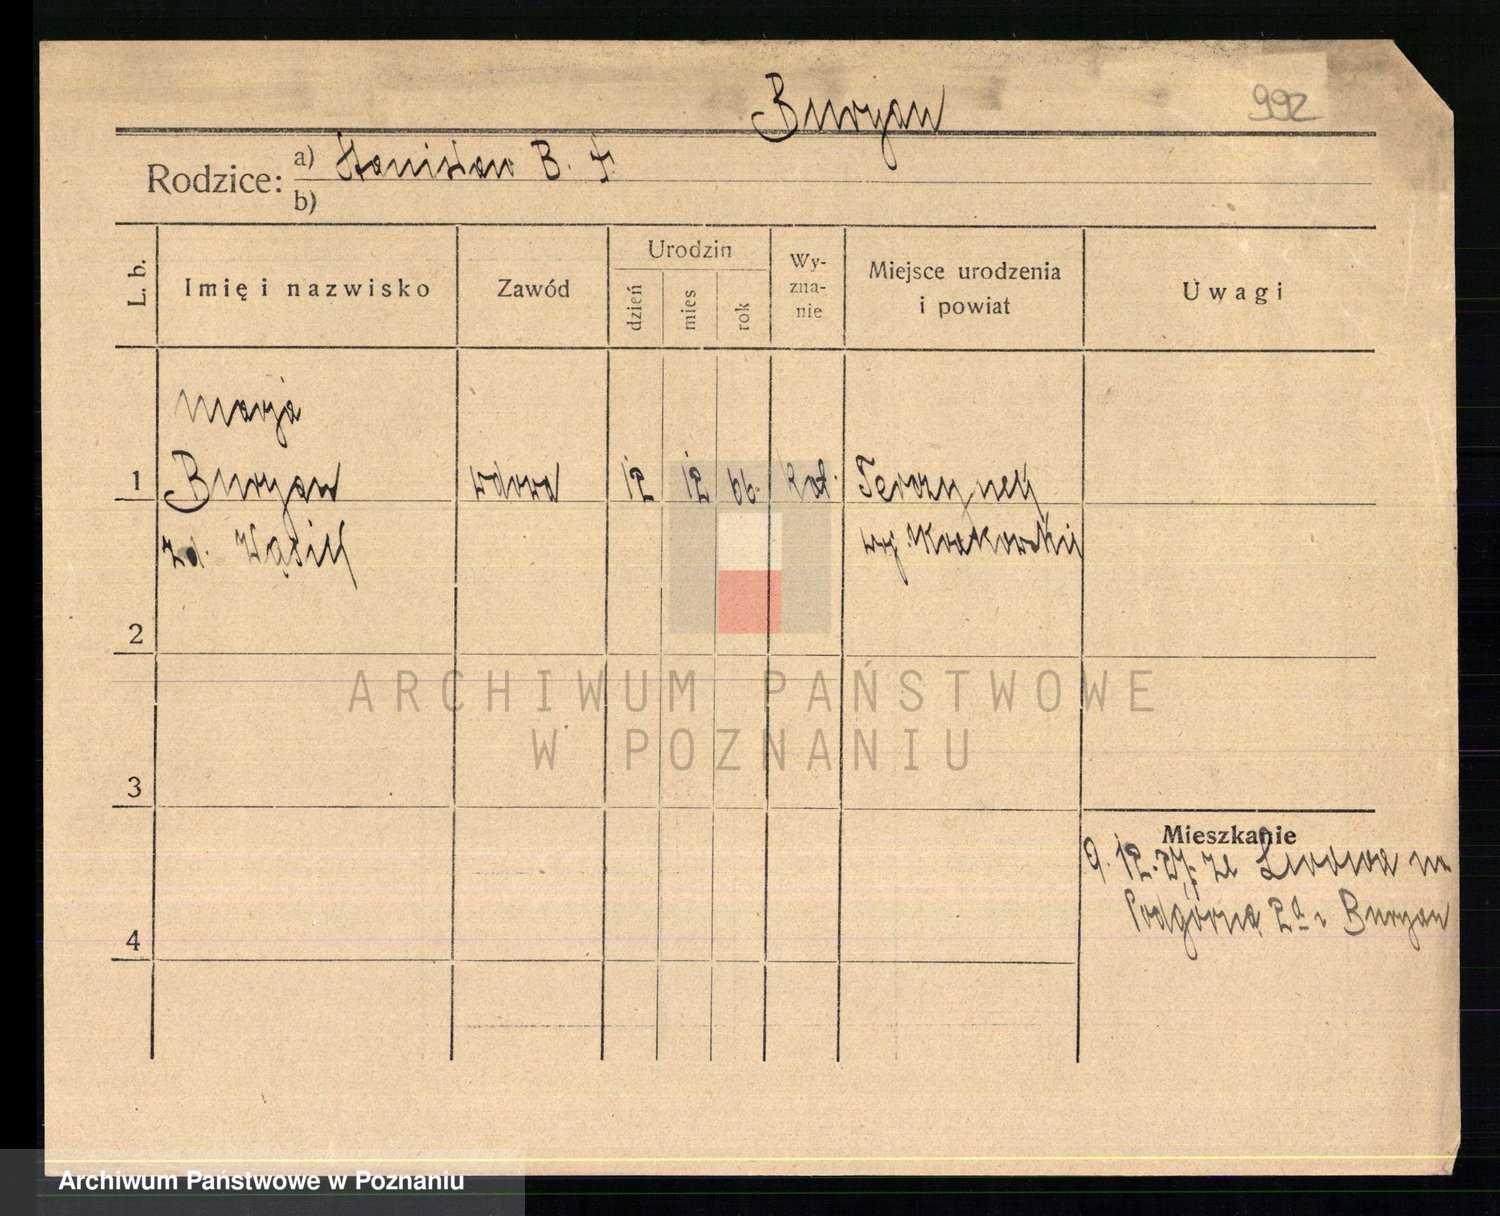 Buryan
992
Rodzice: a) Stanisław B. †.
b)
L. b.
Imię i nazwisko
Zawód
Urodzin
dzień
mies
rok
Wy-
zna-
nie
Miejsce urodzenia
i powiat
Uwagi
Marja
1 Buryan wdowa 12 12 66. kat.
zd.
2
3
4
Mieszkanie
9. 12. 27. ze Lwowa
Podgórna 2a Buryan
ARCHIWUM PAŃSTWOWE
W POZNANIU
Archiwum Państwowe w Poznaniu